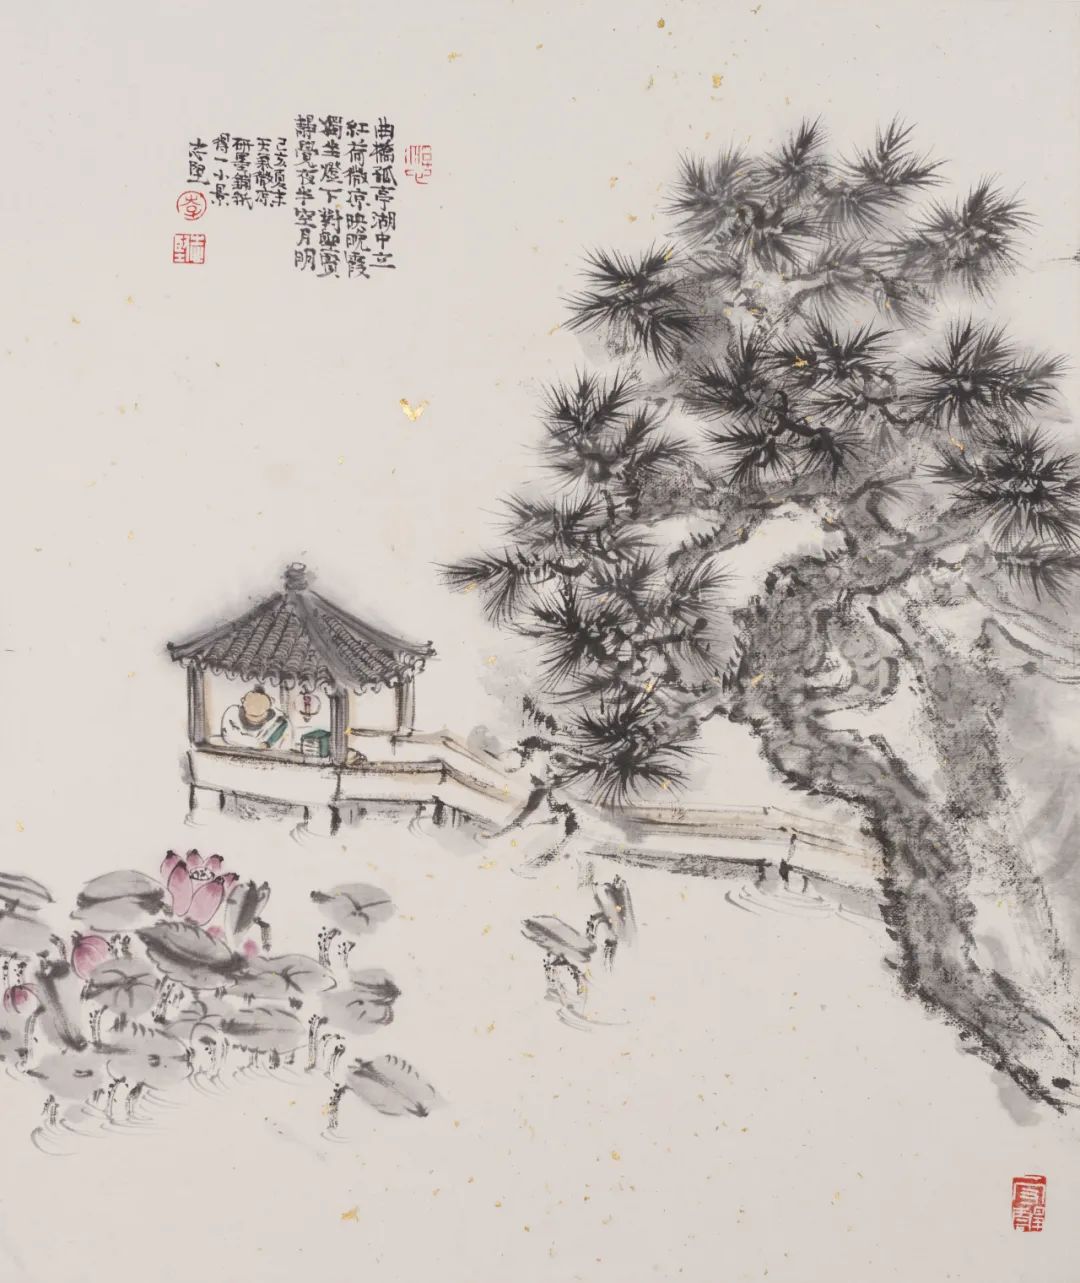 曲橋孤亭湖中立
紅荷微凉映晚霞
獨坐燈下對聖賢
靜覺夜半空月明
己亥夏末
天氣微凉
研墨鋪紙
得一小景
志堅
李
志堅